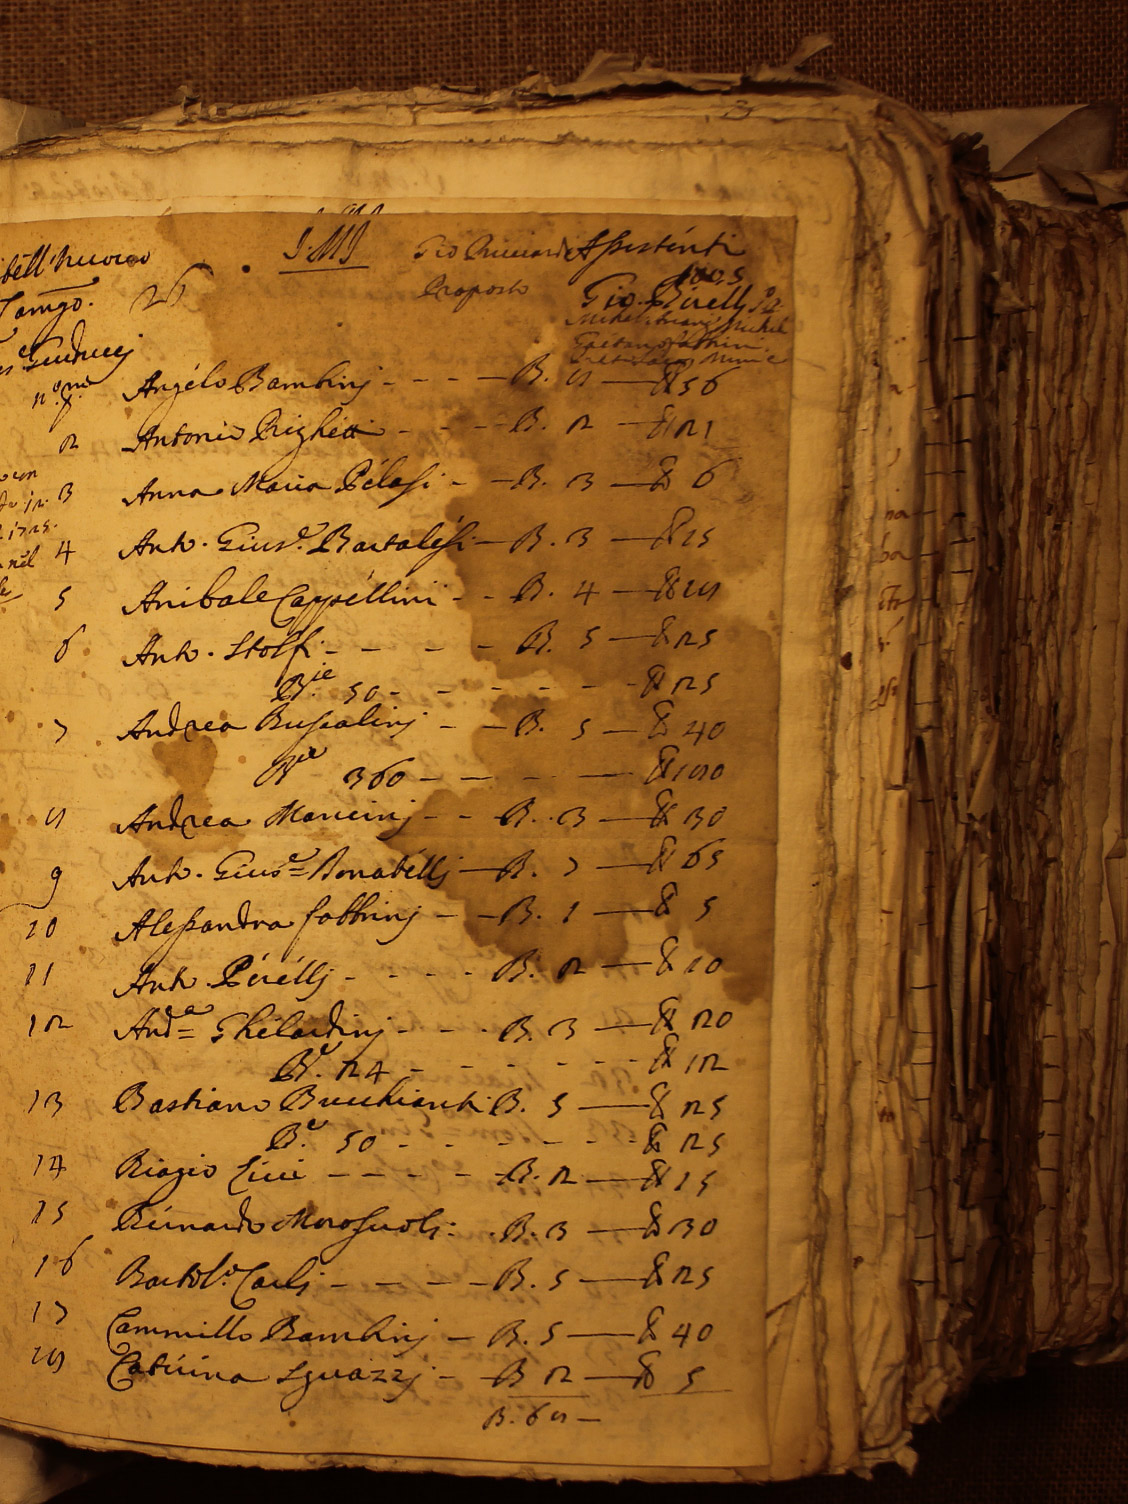 bell'nuovo I.M.J Gio Ricciardi Assistenti
26 Proposto
Gio. Pirelli
Angelo Bambinj - - - - B. 8 — £ 56
2 Antonio Righetti - - - - B. 2 — £ 21
3 Anna Maria Pelasi - - B. 3 — £ 6
4 Ant.o Gius.e Bartalesi — B. 3 — £ 15
5 Anibale Cappellini - - B. 4 — £ 28
6 Ant.o Stolfi - - - - - B. 5 — £ 25
B.ie 50 - - - - - - £ 25
7 Andrea Busealinj - - B. 5 — £ 40
B.ie 360 - - - - — £ 180
8 Andrea Mancinj - - B. 3 — £ 30
9 Ant.o Gius.e Bonabellj — B. 7 — £ 65
10 Alessandro fabbrinj - - B. 1 — £ 5
11 Ant.o Perellj - - - - B. 2 — £ 10
12 And.a Ghelardinj - - - B. 3 — £ 20
B.e 24 - - - - - - £ 12
13 Bastiano Bucchianti B. 5 — £ 25
B.e 50 - - - - - - £ 25
14 Biagio Cini - - - - - B. 2 — £ 15
15 Bernardo B. 3 — £ 30
16 Bartol.o Carlj - - - - B. 5 — £ 25
17 Cammillo Bambinj — B. 5 — £ 40
18 Caterina Sguazzj - - B 2 — £ 5
B. 68 —